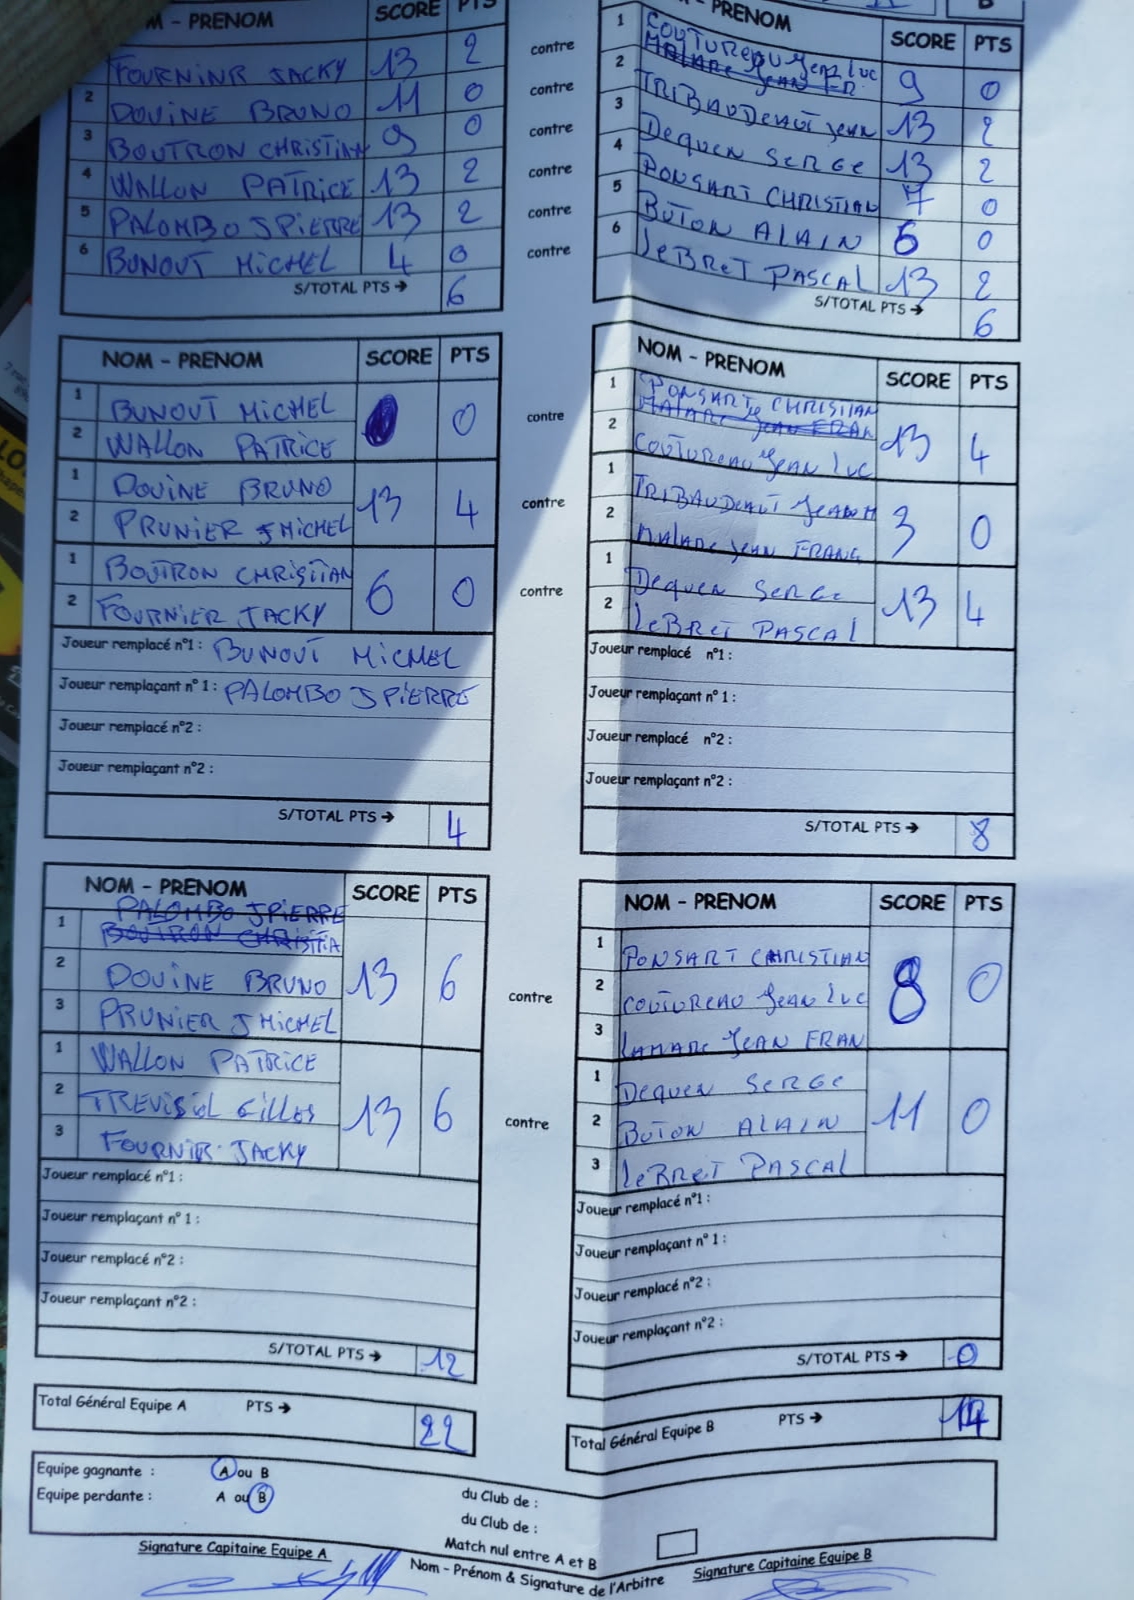 M - PRENOM SCORE PTS
FOURNINR JACKY 13 2
2 DOUINE BRUNO 11 0
3 BOUTRON CHRISTIAN 9 0
4 WALLON PATRICE 13 2
5 PALOMBO JPIERRE 13 2
6 BUNOUT MICHEL 4 0
S/TOTAL PTS → 6
contre
contre
contre
contre
contre
contre
PRENOM SCORE PTS B
1 COUTUREAU JEAN LUC
2 9 0
3 TRIBAUDEAUT JEAN 13 2
4 DEQUEN SERGE 13 2
5 PONSART CHRISTIAN 7 0
6 BUTON ALAIN 6 0
LEBRET PASCAL 13 2
S/TOTAL PTS → 6
NOM - PRENOM SCORE PTS
1 BUNOUT MICHEL 0
2 WALLON PATRICE
1 DOUINE BRUNO 13 4
2 PRUNIER JMICHEL
1 BOUTRON CHRISTIAN 6 0
2 FOURNIER JACKY
Joueur remplacé n°1 : BUNOUT MICHEL
Joueur remplaçant n° 1 : PALOMBO JPIERRE
Joueur remplacé n°2 :
Joueur remplaçant n°2 :
S/TOTAL PTS → 4
contre
contre
contre
NOM - PRENOM SCORE PTS
1 PONSART CHRISTIAN 13 4
2 COUTUREAU JEAN LUC
1 TRIBAUDEAUT JEAN M 3 0
2 MALARC JEAN FRANC
1 DEQUEN SERGE 13 4
2 LEBRET PASCAL
Joueur remplacé n°1 :
Joueur remplaçant n° 1 :
Joueur remplacé n°2 :
Joueur remplaçant n°2 :
S/TOTAL PTS → 8
NOM - PRENOM SCORE PTS
PALOMBO JPIERRE
1 BOUTRON CHRISTIA 13 6
2 DOUINE BRUNO
3 PRUNIER JMICHEL
1 WALLON PATRICE 13 6
2 TREVISIOL GILLES
3 FOURNIR JACKY
Joueur remplacé n°1 :
Joueur remplaçant n° 1 :
Joueur remplacé n°2 :
Joueur remplaçant n°2 :
S/TOTAL PTS → 12
contre
contre
NOM - PRENOM SCORE PTS
1 PONSART CHRISTIAN 8 0
2 COUTUREAU JEAN LUC
3 LAMARC JEAN FRAN
1 DEQUEN SERGE 11 0
2 BUTON ALAIN
3 LEBRET PASCAL
Joueur remplacé n°1 :
Joueur remplaçant n° 1 :
Joueur remplacé n°2 :
Joueur remplaçant n°2 :
S/TOTAL PTS → 0
Total Général Equipe A PTS → 22
Total Général Equipe B PTS → 14
Equipe gagnante : A ou B du Club de :
Equipe perdante : A ou B du Club de :
Match nul entre A et B
Signature Capitaine Equipe A
Nom - Prénom & Signature de l'Arbitre
Signature Capitaine Equipe B